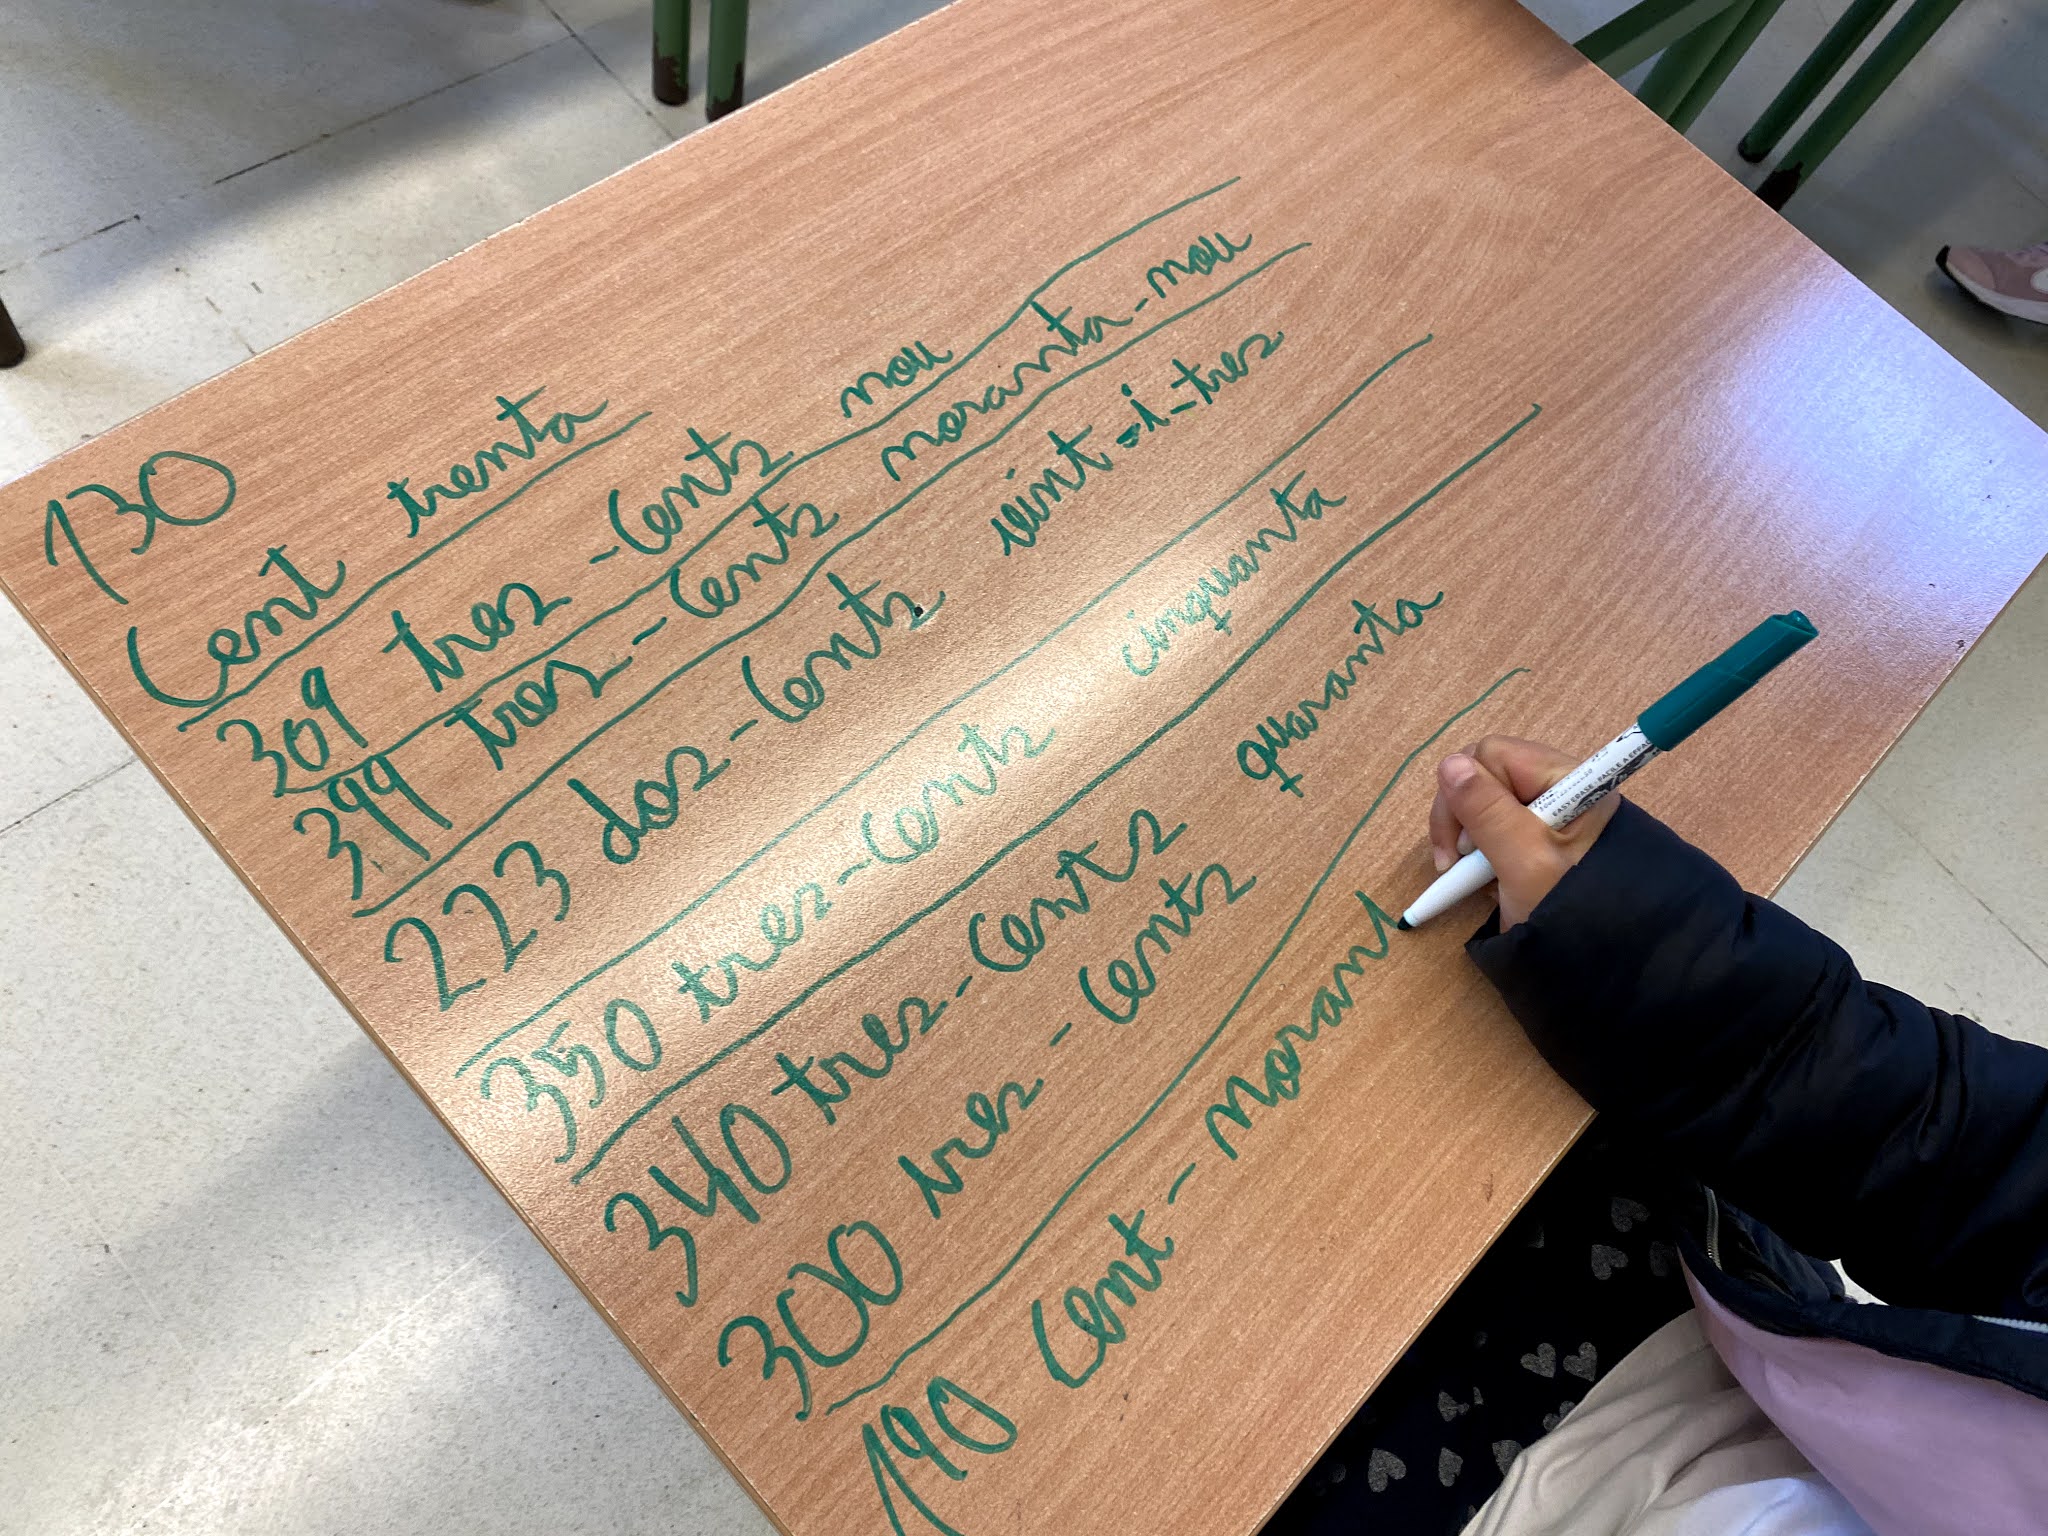 130
Cent trenta
309 tres-cents nou
399 tres-cents noranta-nou
223 dos-cents vint-i-tres
350 tres-cents cinquanta
340 tres-cents quaranta
300 tres-cents
190 Cent-norant
EASY ERASE · FACILE A EFFAC